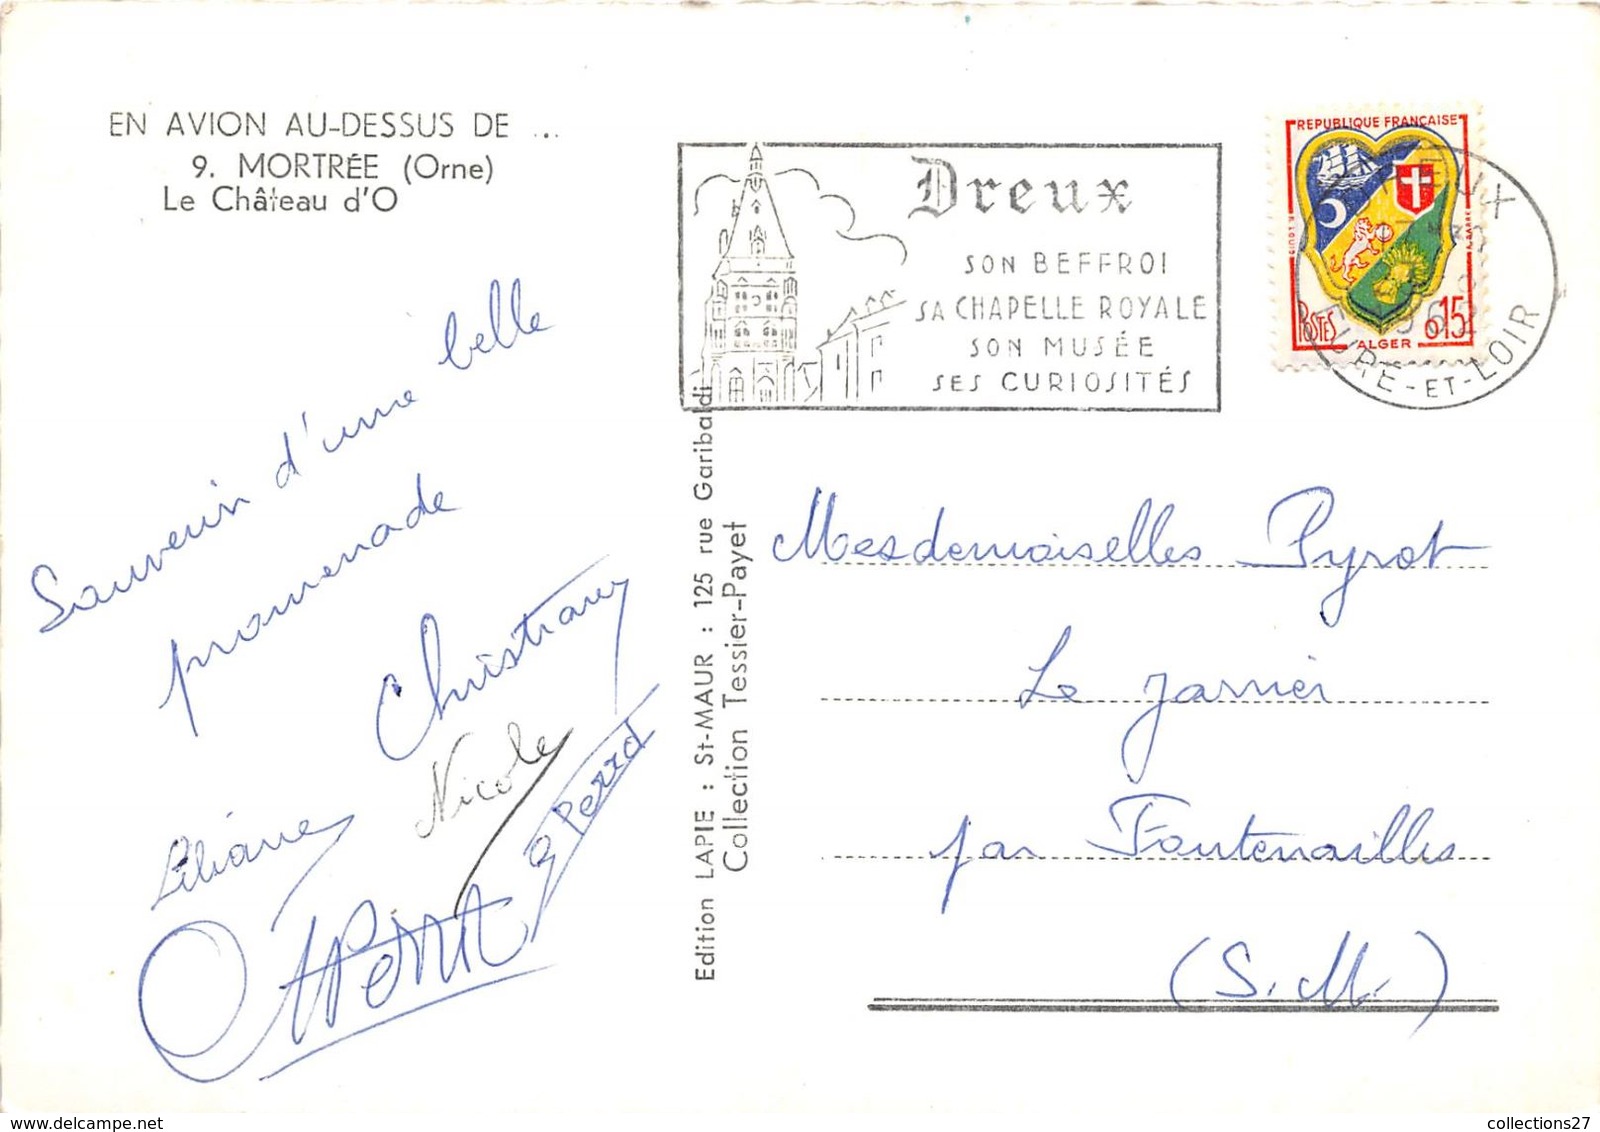 EN AVION AU-DESSUS DE ...
9. MORTRÉE (Orne)
Le Château d'O
Dreux
SON BEFFROI
SA CHAPELLE ROYALE
SON MUSÉE
SES CURIOSITÉS
REPUBLIQUE FRANÇAISE
POSTES
0,15
ALGER
DREUX
EURE-ET-LOIR
Souvenir d'une belle
promenade
Christiane
Nicole
Liliane
Edition LAPIE : St-MAUR : 125 rue Garibaldi
Collection Tessier-Payet
Mesdemoiselles Pyrot
Le Jarrier
par Fontenailles
(S. M.)
collections27